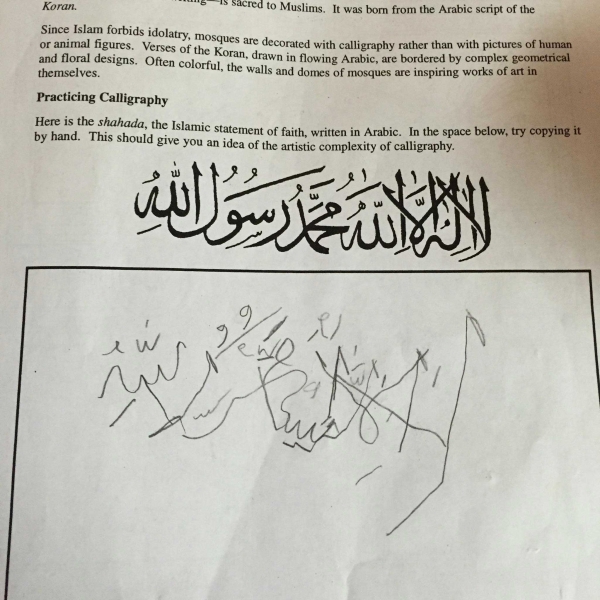 is sacred to Muslims. It was born from the Arabic script of the
Koran.
Since Islam forbids idolatry, mosques are decorated with calligraphy rather than with pictures of human
or animal figures. Verses of the Koran, drawn in flowing Arabic, are bordered by complex geometrical
and floral designs. Often colorful, the walls and domes of mosques are inspiring works of art in
themselves.
Practicing Calligraphy
Here is the shahada, the Islamic statement of faith, written in Arabic. In the space below, try copying it
by hand. This should give you an idea of the artistic complexity of calligraphy.
لا إله إلا الله محمد رسول الله